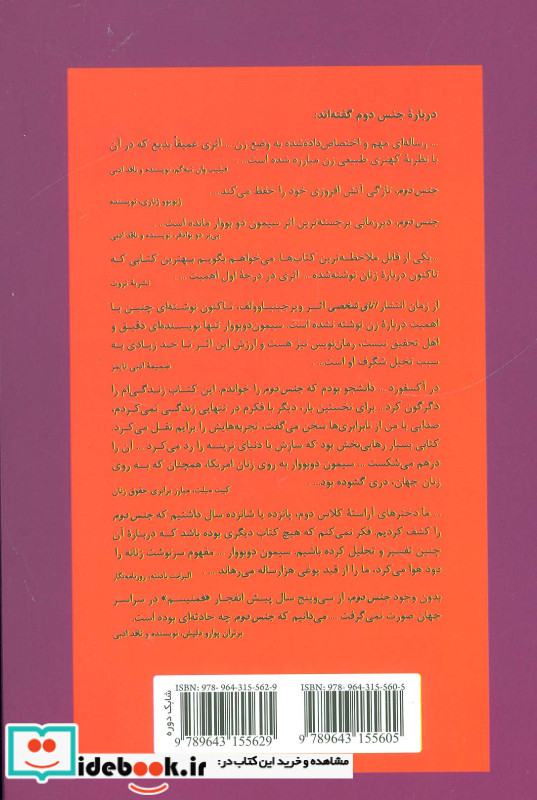 دربارهٔ جنس دوم گفته‌اند:
... رساله‌ای مهم و اختصاص‌داده‌شده به وضع زن ... اثری عمیقاً بدیع که در آن
با نظریهٔ کهتری طبیعی زن مبارزه شده است...
فیلیپ وان تیه‌گم، نویسنده و ناقد ادبی
جنس دوم، تازگی آتش افروزی خود را حفظ می‌کند ...
ژنویوو ژناری، نویسنده
جنس دوم، دیرزمانی برجسته‌ترین اثر سیمون دو بووار مانده است...
پی‌یر دو بوادفر، نویسنده و ناقد ادبی
...یکی از قابل ملاحظه‌ترین کتاب‌ها. می‌خواهم بگویم بهترین کتابی که
تاکنون دربارهٔ زنان نوشته‌شده ... اثری در درجهٔ اول اهمیت ...
نشریهٔ پروت
از زمان انتشار اتاق شخصی اثر ویرجینیاوولف، تاکنون نوشته‌ای چنین با
اهمیت دربارهٔ زن نوشته نشده است. سیمون‌دوبووار تنها نویسنده‌ای دقیق و
اهل تحقیق نیست، رمان‌نویس نیز هست و ارزش این اثر تا حد زیادی به
سبب تخیل شگرف او است...
ضمیمهٔ ادبی تایمز
در آکسفورد ... دانشجو بودم که جنس دوم را خواندم. این کتاب زندگی‌ام را
دگرگون کرد... برای نخستین بار، دیگر با فکرم در تنهایی زندگی نمی‌کردم،
صدایی با من از نابرابری‌ها سخن می‌گفت، تجربه‌هایش را برایم نقل می‌کرد.
کتابی بسیار رهایی‌بخش بود که سازش با دنیای نرینه را رد می‌کرد ... آن را
درهم می‌شکست ... سیمون دوبووار به روی زنان امریکا، همچنان که به روی
زنان جهان، دری گشوده بود...
کیت میلت، مبارز برابری حقوق زنان
... ما دخترهای آراستهٔ کلاس دوم، پانزده یا شانزده سال داشتیم که جنس دوم
را کشف کردیم. فکر نمی‌کنم که هیچ کتاب دیگری بوده باشد که دربارهٔ آن
چنین تفسیر و تحلیل کرده باشیم. سیمون دوبووار ... مفهوم سرنوشت زنانه را
دود هوا می‌کرد، ما را از قید یوغی هزارساله می‌رهاند ...
الیزابت بادنته، روزنامه‌نگار
بدون وجود جنس دوم، از سی‌وپنج سال پیش انفجار «فمنیسم» در سراسر
جهان صورت نمی‌گرفت ... می‌دانیم که جنس دوم چه حادثه‌ای بوده است.
برتران پوارو دلپش، نویسنده و ناقد ادبی
ISBN: 978- 964-315-562-9
ISBN: 978- 964-315-560-5
شابک دوره
9 789643 155629
9 789643 155605
مشاهده و خرید این کتاب در:
idebook.ir